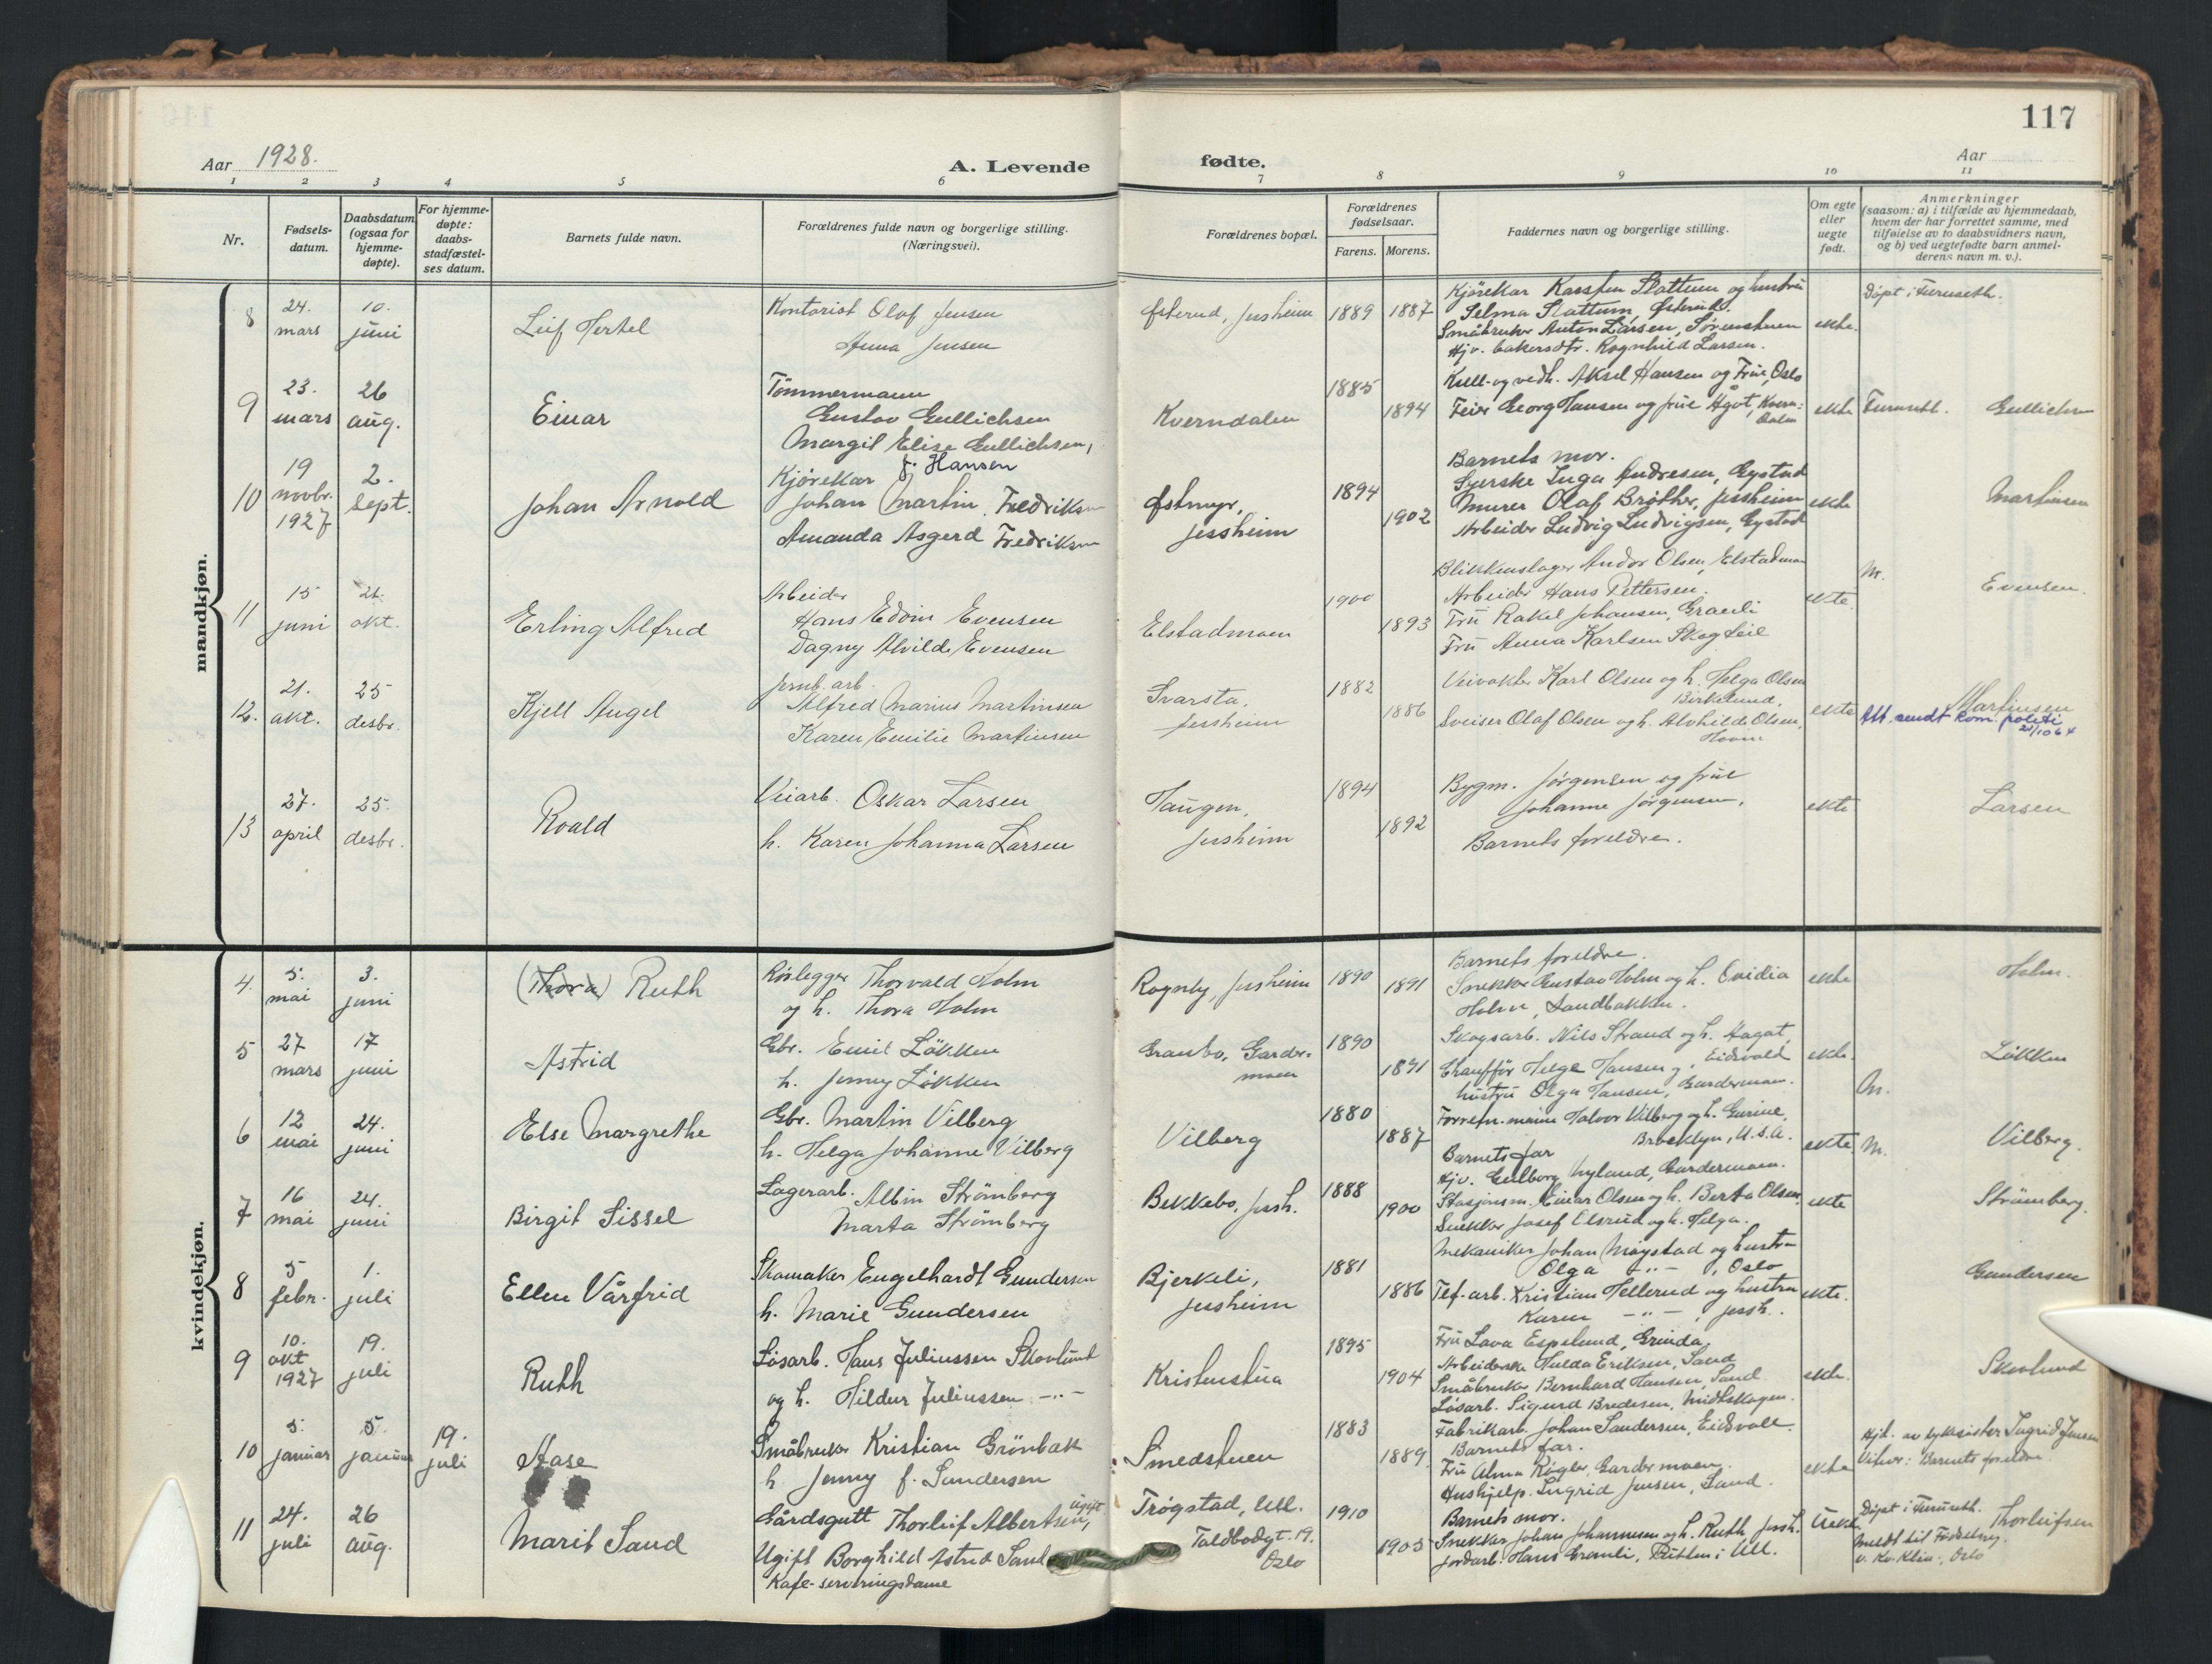 117
Aar 1928.
A. Levende
fødte.
Aar
1 2 3 4 5 6 7 8 9 10 11
Nr.
Fødsels-
datum.
Daabsdatum
(ogsaa for
hjemme-
døpte).
For hjemme-
døpte:
daabs-
stadfæstel-
ses datum.
Barnets fulde navn.
Forældrenes fulde navn og borgerlige stilling.
(Næringsvei).
Forældrenes bopæl.
Forældrenes
fødselsaar.
Farens. Morens.
Faddernes navn og borgerlige stilling.
Om egte
eller
uegte
født.
Anmerkninger
(saasom: a) i tilfælde av hjemmedaab,
hvem der har forrettet samme, med
tilføielse av to daabsvidners navn,
og b) ved uegtefødte barn anmel-
derens navn m. v.).
mandkjøn.
8
24.
mars
10.
juni
Leif Hertel
Kontorist Olaf Jensen
Anna Jensen
Østerud, Jessheim
1889 1887
Kjørekar Karsten Slattum og hustru
Selma Slattum, Østerud.
Småbruker Anton Larsen, Sørenstuen
Hjv. bakersdtr. Ragnhild Larsen.
ekte.
Døpt i Furuseth.
9
23.
mars
26
aug.
Einar
Tømmermann
Gustav Gullichsen
Margit Elise Gullichsen,
f. Hansen
Kverndalen
1885
1894
Kull- og vedh. Aksel Hansen og Frue, Oslo
Feier Georg Hansen og frue Ågot, Kvern-
dalen
ekte
Furuseth.
Gullichsen
10
19
novbr.
1927
2.
sept.
Johan Arnold
Kjørekar
Johan Martin Fredriksen
Amanda Asgerd Fredriksen
Østmyr,
Jessheim
1894
1902
Barnets mor.
Syerske Inga Andresen, Gystad
Murer Olaf Bråthen, Jessheim
Arbeider Ludvig Ludvigsen, Gystad
ekte
Martinsen
11
15
juni
21.
okt.
Erling Alfred
Arbeider
Hans Edvin Evensen
Dagny Alvilde Evensen
Elstadmoen
1900
1893
Blikkenslager Andor Olsen, Elstadmoen
Arbeider Hans Pettersen.
Fru Rakel Johansen, Granli
Fru Anna Karlsen Skogleie
ekte
M.
Evensen.
12.
21.
okt.
25
desbr.
Kjell Angel
Jernb. arb.
Alfred Marius Martinsen
Karen Emilie Martinsen
Svarsta,
Jessheim
1882
1886
Veivokter Karl Olsen og h. Helga Olsen
Birkelund,
Sveiser Olaf Olsen og h. Alvhilde Olsen,
ekte
Martinsen
Att. sendt kom. politi
21/10 64
13
27.
april
25.
desbr.
Roald
Veiarb. Oskar Larsen
h. Karen Johanna Larsen
Haugen,
Jessheim
1894
1892
Bygm. Jørgensen og frue
Johanne Jørgensen.
Barnets foreldre.
ekte
Larsen
kvindekjøn.
4.
5.
mai
3.
juni
(Thora) Ruth
Rørlegger Thorvald Holm
og h. Thora Holm
Rognby, Jessheim
1890 1891
Barnets foreldre.
Snekker Gustav Holm og h. Ovidia
Holm, Sandbakken.
ekte
Holm.
5
27
mars
17
juni
Astrid
Gbr. Emil Løkken
h. Jenny Løkken
Granbo, Garder-
moen
1890
1891
Skogsarb. Nils Strand og h. Hagat,
Eidsvold
Chauffør Helge Hansen og
hustru Olga Hansen, Gardermoen.
ekte.
M.
Løkken
6
12
mai
24.
juni
Else Margrethe
Gbr. Martin Vilberg
h. Helga Johanne Vilberg
Vilberg
1880
1887
Forretn. mann Halvor Vilberg og h. Gurine,
Brooklyn, U.S.A.
Barnets far
Hjv. Gulborg Nyland, Gardermoen.
ekte
M.
Vilberg.
7
16
mai
24.
juni
Birgit Sissel
Lagerarb. Albin Strömberg
Marta Strömberg
Bekkebo, Jessh.
1888
1900
Stasjonsm. Einar Olsen og h. Berta Olsen,
Snekker Josef Elsrud og h. Helga.
ekte
Strömberg.
8
5
febr.
1.
juli
Ellen Vårfrid
Skomaker Engelhardt Gundersen
h. Marie Gundersen
Bjerkeli,
Jessheim
1881
1886
Mekaniker Johan Møystad og hustru
Olga -"- , Oslo
Tlf.-arb. Kristian Hellerud og hustru
Karen -"- , Jessh.
ekte.
Gundersen
9
10.
okt
1927
19.
juli
Ruth
Løsarb. Hans Juliussen Skovlund
og h. Hildur Juliussen -"-
Kristenstua
1895
1904
Fru Lava Espelund, Grinda,
Arbeiderske Hulda Eriksen, Sand
Småbruker Bernhard Hansen, Sand
Løsarb. Sigurd Bredesen, Midtskogen.
ekte.
Skovlund
10
5.
januar
5.
januar
19.
juli
Aase
Småbruker Kristian Grønbæk
h. Jenny f. Sandersen
Smedstuen
1883
1889
Fabrikarb. Johan Sandersen, Eidsvoll.
Barnets far.
Fru Alma Røgler, Gardermoen.
Hushjelp. Ingrid Jensen, Sand.
ekte
Hjd. av sykesøster Ingrid Jensen
Vitner: Barnets foreldre.
11
24.
juli
26
aug.
Marit Sand
Gårdsgutt Thorleif Albertsen, ugift
Ugift Borghild Astrid Sand
Kafe-serveringsdame
Trøgstad, Ull.
Toldbodgt. 19.
Oslo
1910
1905
Barnets mor.
Snekker Johan Johannesen og h. Ruth Jessh.
Jordarb. Hans Granli, i Ull.
Uekte
Døpt i Furuseth.
meldt til Fødselreg.
v. Kv. Klin., Oslo
Thorleifsen